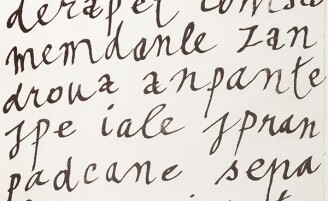 derapet
memdanle zan
droua anpante
spe iale spran
padcane sepa